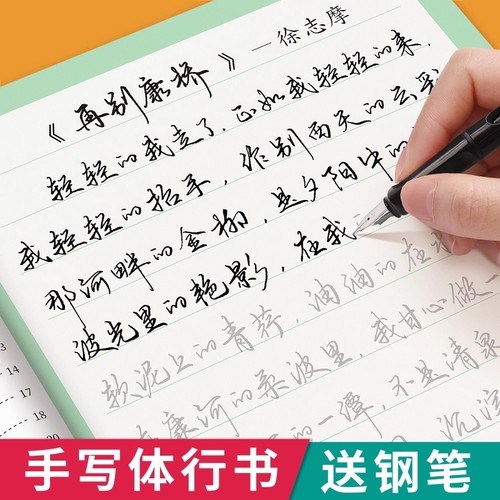 《再别康桥》—徐志摩
轻轻的我走了,正如我轻轻的来,
我轻轻的招手,作别西天的云彩
那河畔的金柳,是夕阳中的
波光里的艳影,在我
软泥上的青荇,油油的在
在康河的柔波里,我甘心做一
的一潭,不是清泉
沉淀
3
14
18
20
手写体行书 送钢笔